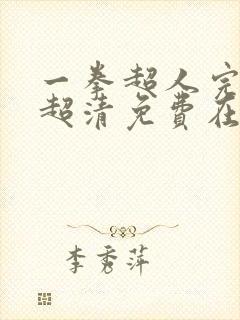 一拳超人完
超清免费在
李秀萍